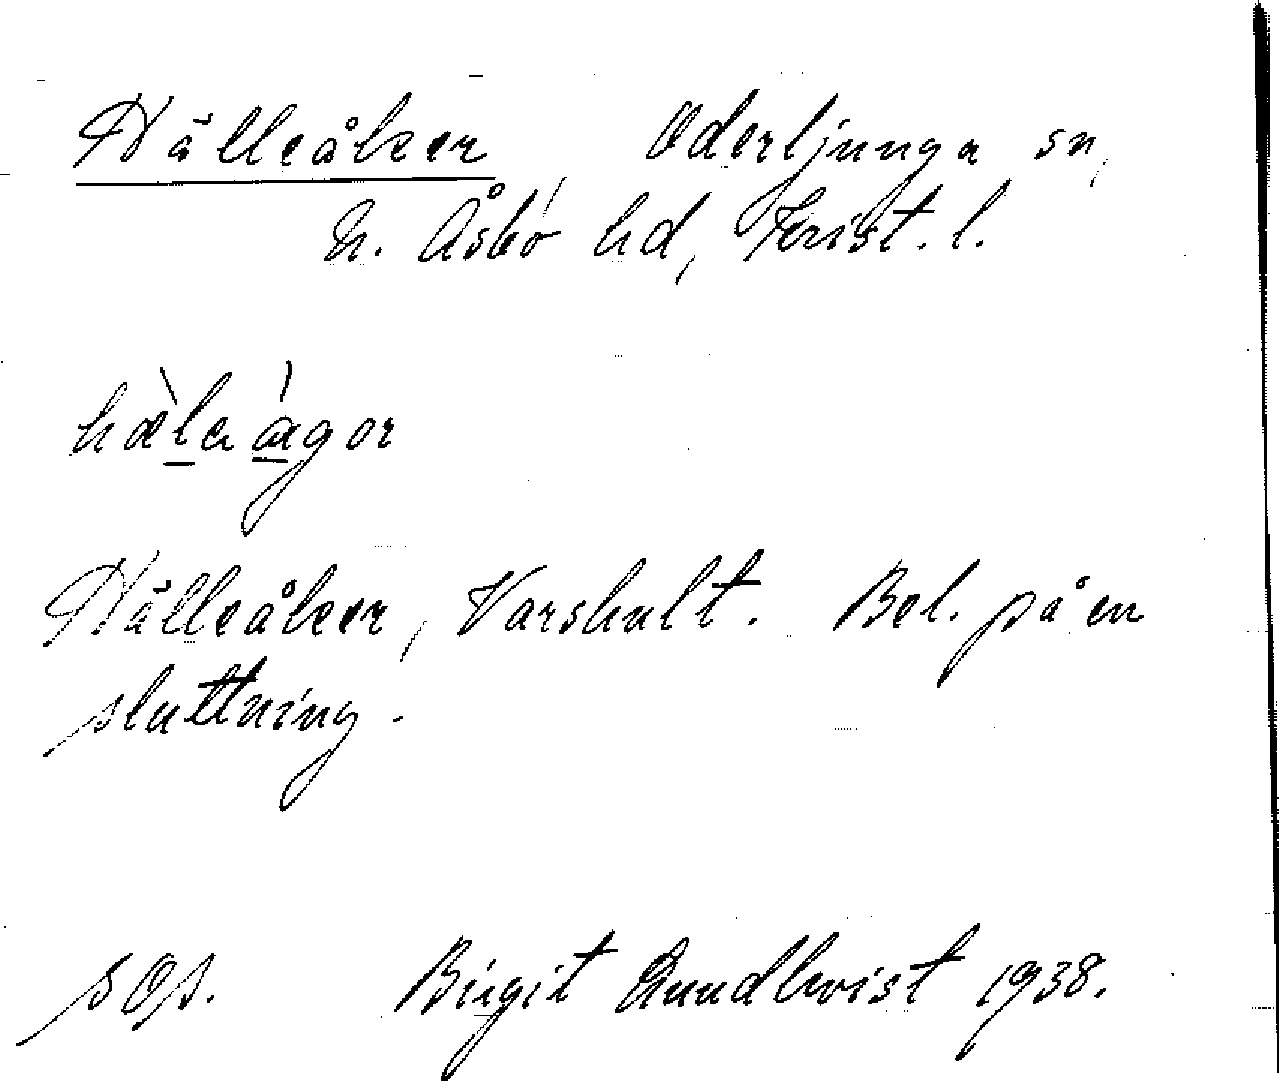 Hälleåker Oderljunga sn,
N. Åsbo hd, Krist. l.
hælaågor
Hälleåker, Varshult. Bel. på en
sluttning.
sOs. Birgit Rundkvist 1938.